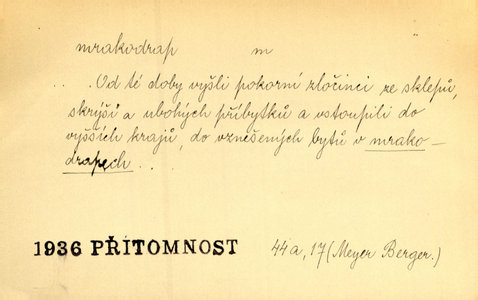 mrakodrap m
. . . Od té doby vyšli pokorní zločinci ze sklepů,
skrýší a ubohých příbytků a vstoupili do
vyšších krajů, do vznešených bytů v mrako-
drapech . . .
1936 PŘÍTOMNOST 44a, 17 (Meyer Berger.)